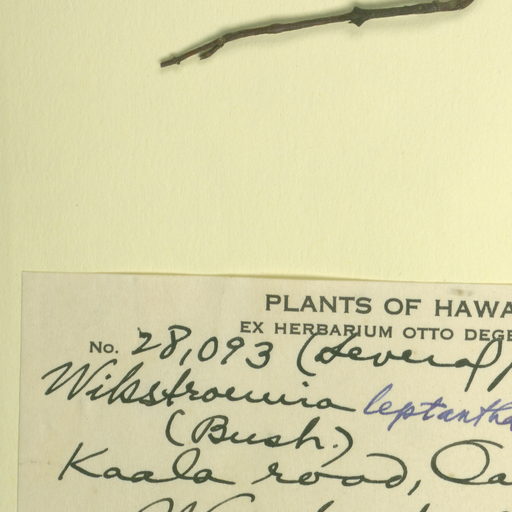 PLANTS OF HAWA
EX HERBARIUM OTTO DEGE
No. 28,093 (Several)
Wikstroemia leptantha
(Bush.)
Kaala road, Oa